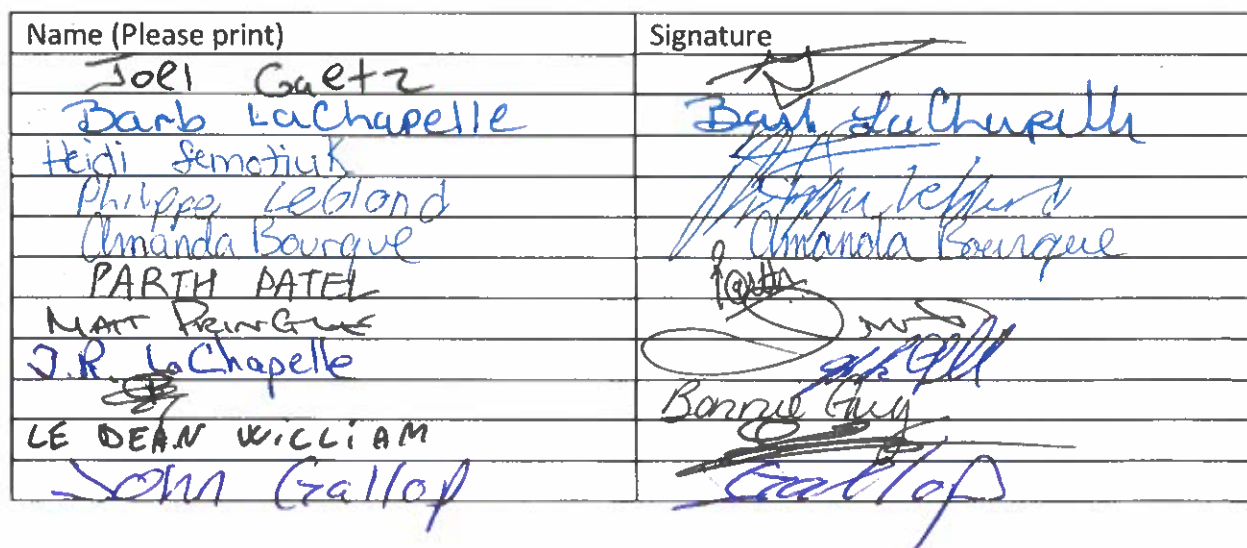 Name (Please print) Signature
Joel Gaetz
Barb LaChapelle Barb LaChapelle
Heidi Semotiuk
Philippe LeBlond Philippe LeBlond
Amanda Bourque Amanda Bourque
PARTH PATEL Parth
MATT PRINGLE
J.R. LaChapelle
Bonnie Guy
LE DEAN WILLIAM
John Gallop Gallop